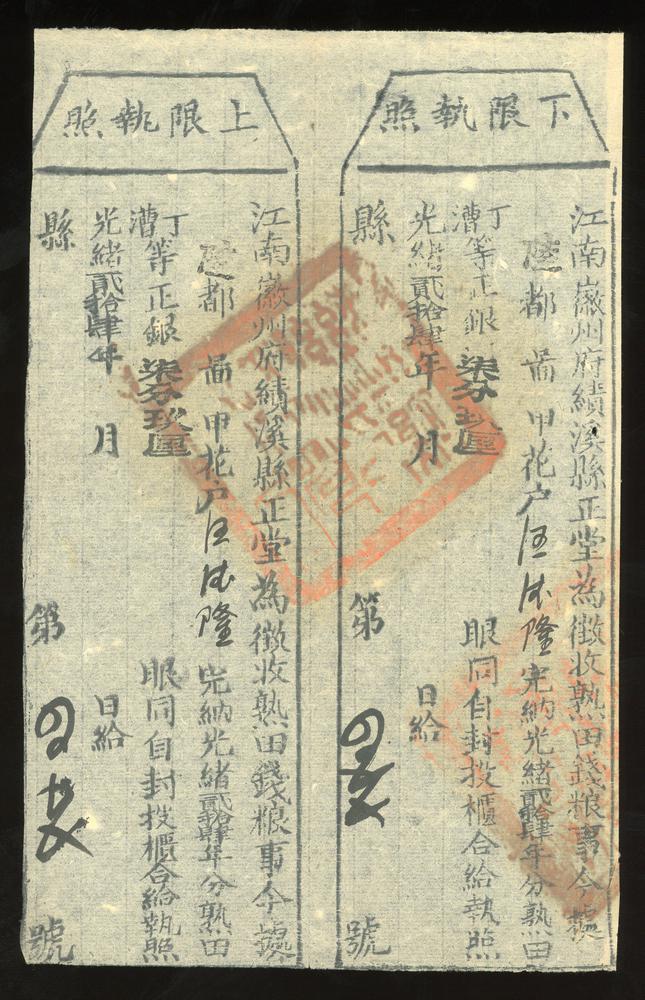 下限執照
江南徽州府績溪縣正堂為徵收熟田錢粮事今據
都 啚 甲花户汪 隆完納光緒貳拾肆年分熟田
丁漕等正銀 柒分玖厘 眼同自封投櫃合給執照
光緒貳拾肆年 月 日給
縣 第 號
上限執照
江南徽州府績溪縣正堂為徵收熟田錢粮事今據
都 啚 甲花户汪 隆完納光緒貳拾肆年分熟田
丁漕等正銀 柒分玖厘 眼同自封投櫃合給執照
光緒貳拾肆年 月 日給
縣 第 號